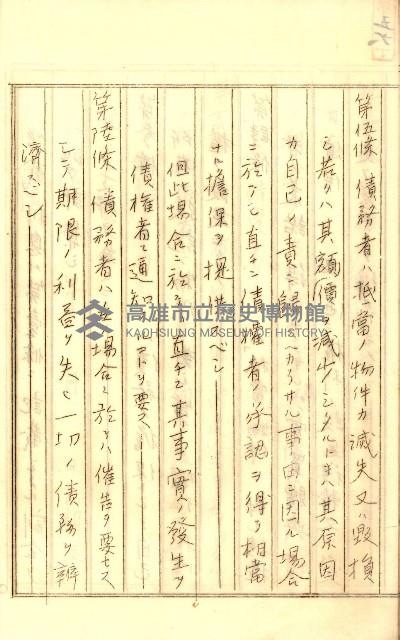 第五條 債務者ハ抵當ノ物件カ滅失又ハ毀損
シ若クハ其額價ヲ減少シタルトキハ其原因
カ自己ノ責ニ歸スヘカラサル事由ニ因ル場合
ニ於テモ直チニ債權者ノ承認ヲ得ル相當
ナル擔保ヲ提供スベシ
但此場合ニ於テハ直チニ其事實ノ發生ヲ
債權者ニ通知スルコトヲ要ス
第陸條 債務者ハ左ノ場合ニ於テハ催告ヲ要セス
シテ期限ノ利益ヲ失ヒ一切ノ債務ヲ辨
濟スベシ
高雄市立歷史博物館
KAOHSIUNG MUSEUM OF HISTORY